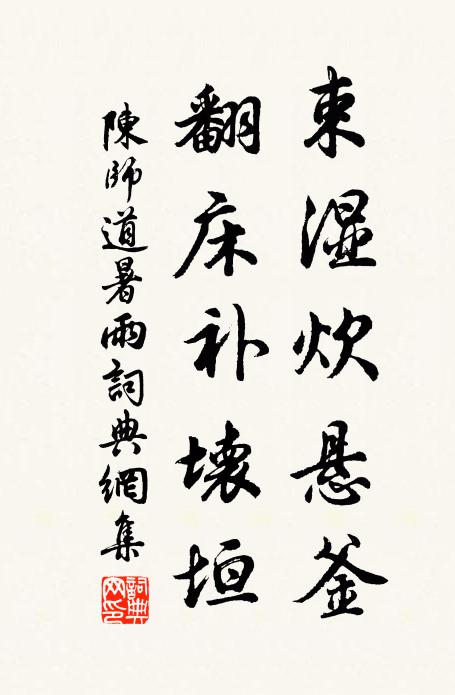 束湿炊悬釜
翻床补壊垣
陳師道暑雨詞典網集
詞典网印